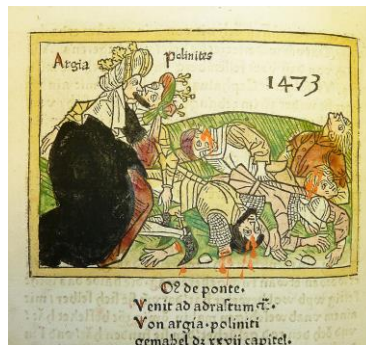 Argia Polinites
1473
OZ de ponte.
Venit ad adrastum ⁊c̄.
Von argia. poliniti
gemahel dz xxvij capitel.